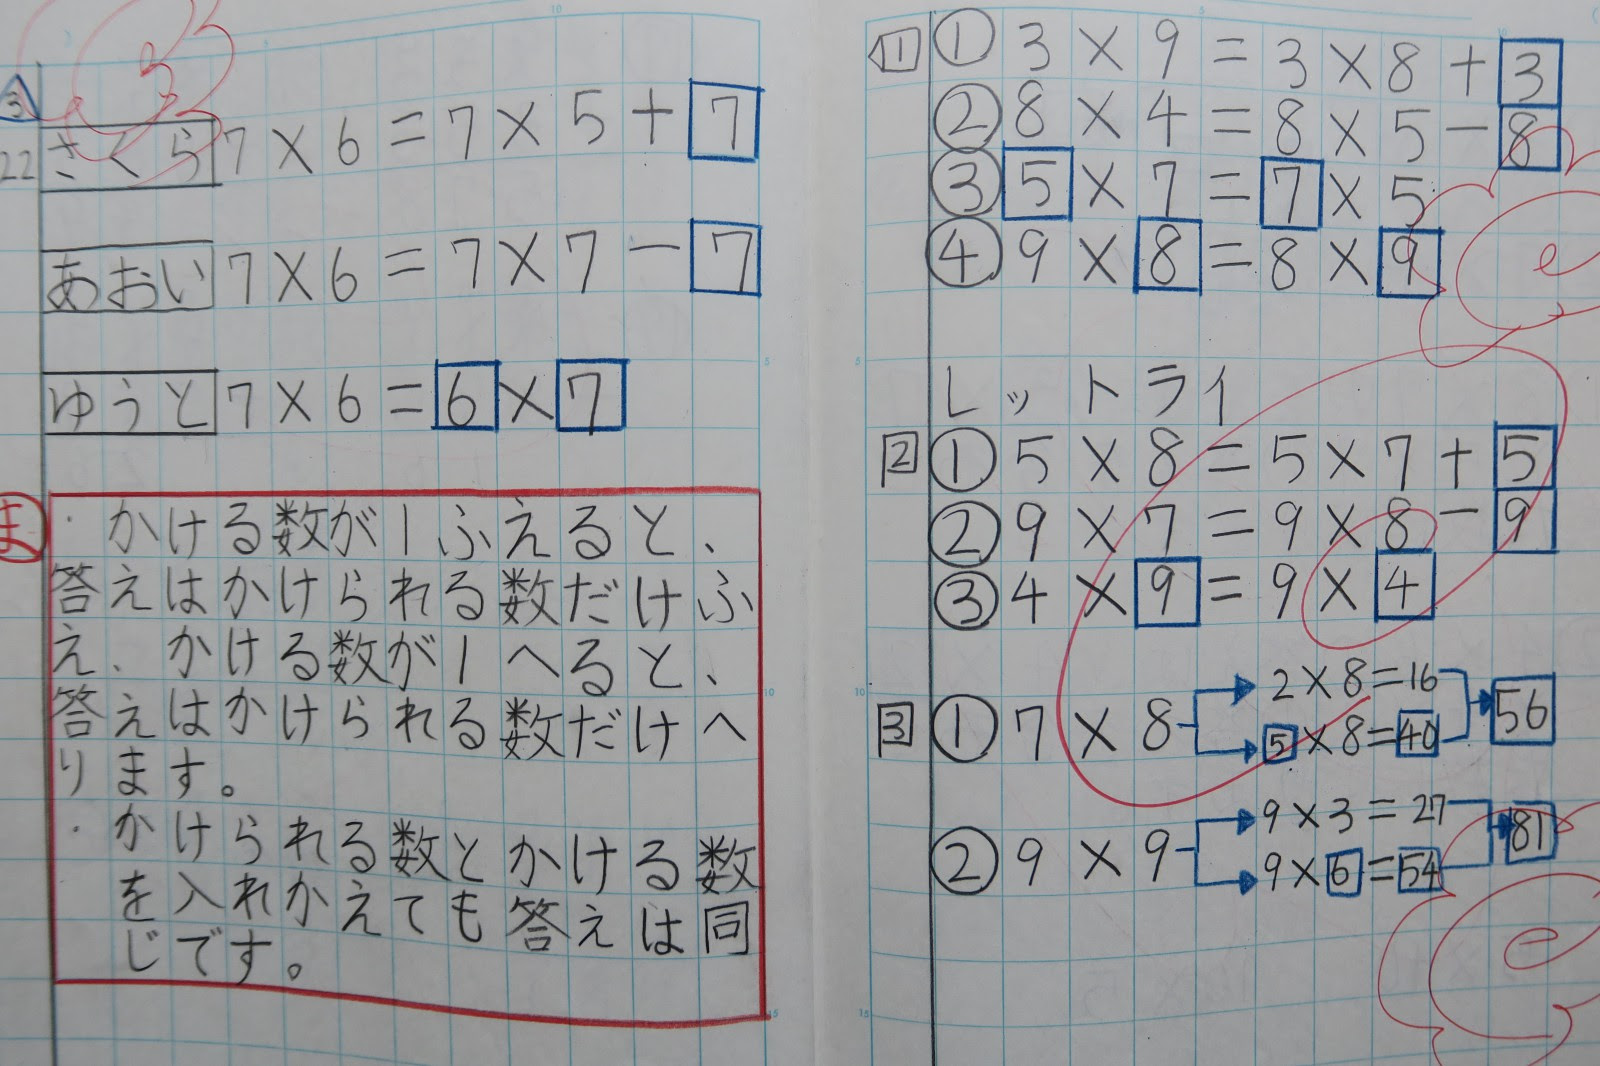 3
22
さくら 7×6=7×5+7
あおい 7×6=7×7-7
ゆうと 7×6=6×7
ま
・かける数が1ふえると、
答えはかけられる数だけふ
え、かける数が1へると、
答えはかけられる数だけへ
ります。
・かけられる数とかける数
を入れかえても答えは同
じです。
1 ① 3×9=3×8+3
② 8×4=8×5-8
③ 5×7=7×5
④ 9×8=8×9
レットライ
2 ① 5×8=5×7+5
② 9×7=9×8-9
③ 4×9=9×4
3 ① 7×8
2×8=16
5×8=40
56
② 9×9
9×3=27
9×6=54
81